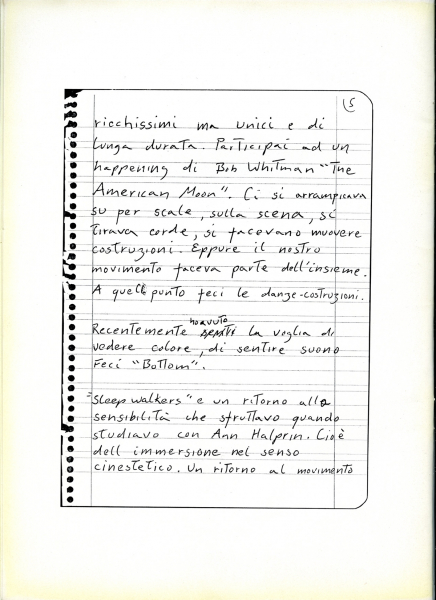 5
ricchissimi ma unici e di
lunga durata. Participai ad un
happening di Bob Whitman "The
American Moon". Ci si arrampicava
su per scale, sulla scena, si
tirava corde, si facevano muovere
costruzioni. Eppure il nostro
movimento faceva parte dell'insieme.
A quell punto feci le danze-costruzioni.
Recentemente ho avuto la voglia di
vedere colore, di sentire suono
Feci "Bottom".
"Sleep walkers" e un ritorno alla
sensibilità che sfruttavo quando
studiavo con Ann Halprin. Cioè
dell immersione nel senso
cinestetico. Un ritorno al movimento